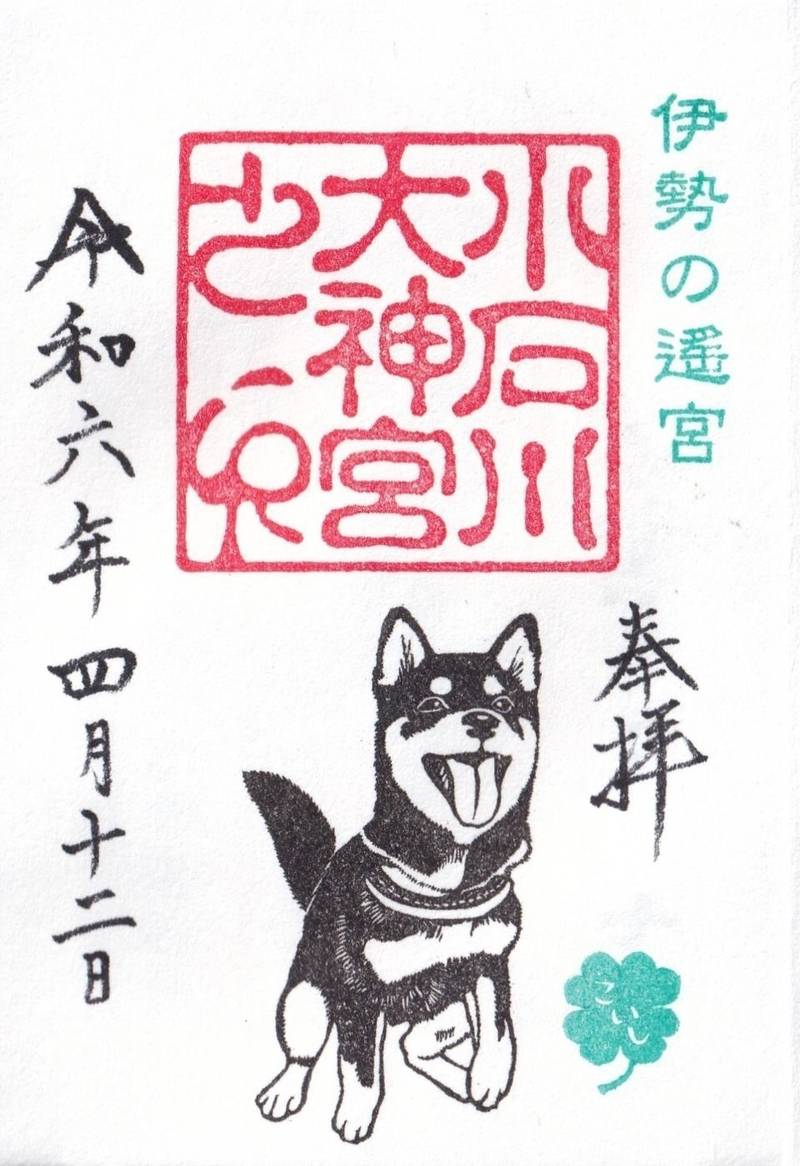 伊勢の遙宮
奉拝
小石川
大神宮
之印
こいし
令和六年四月十二日